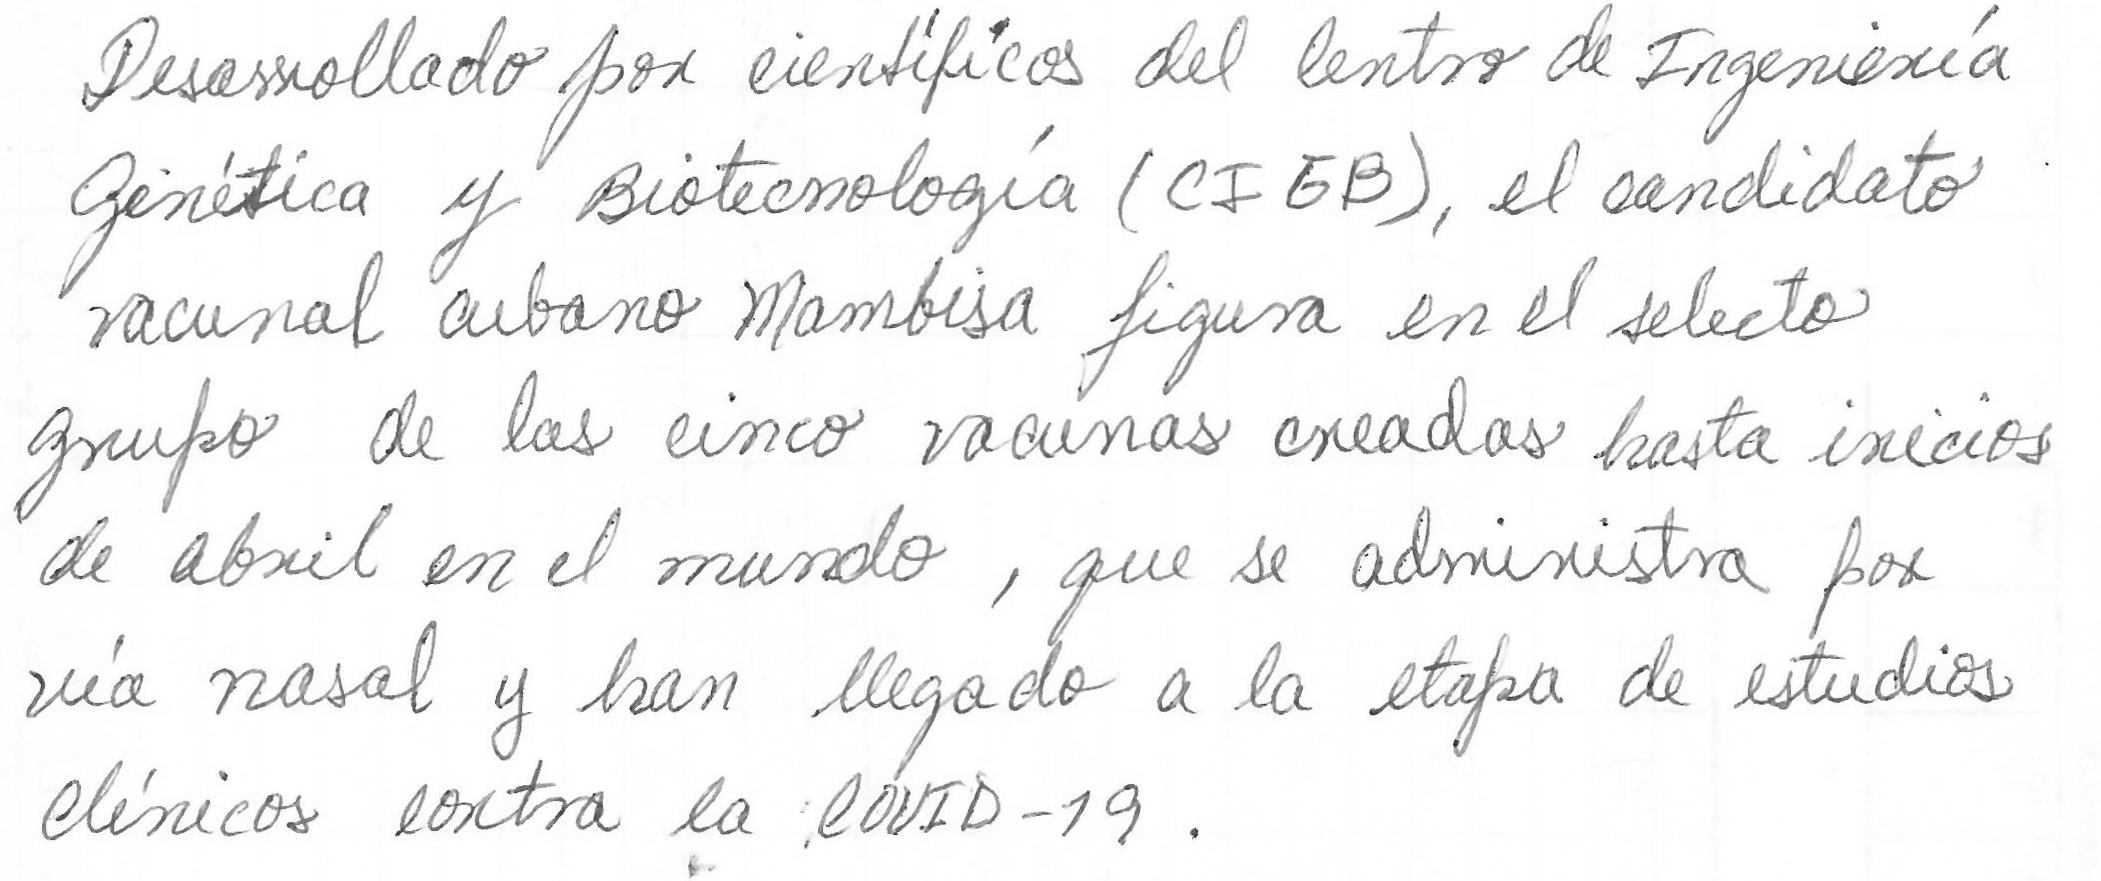 Desarrollado por científicos del Centro de Ingeniería
Genética y Biotecnología (CIGB), el candidato
vacunal cubano Mambisa figura en el selecto
grupo de las cinco vacunas creadas hasta inicios
de abril en el mundo, que se administra por
vía nasal y han llegado a la etapa de estudios
clínicos contra la COVID-19.